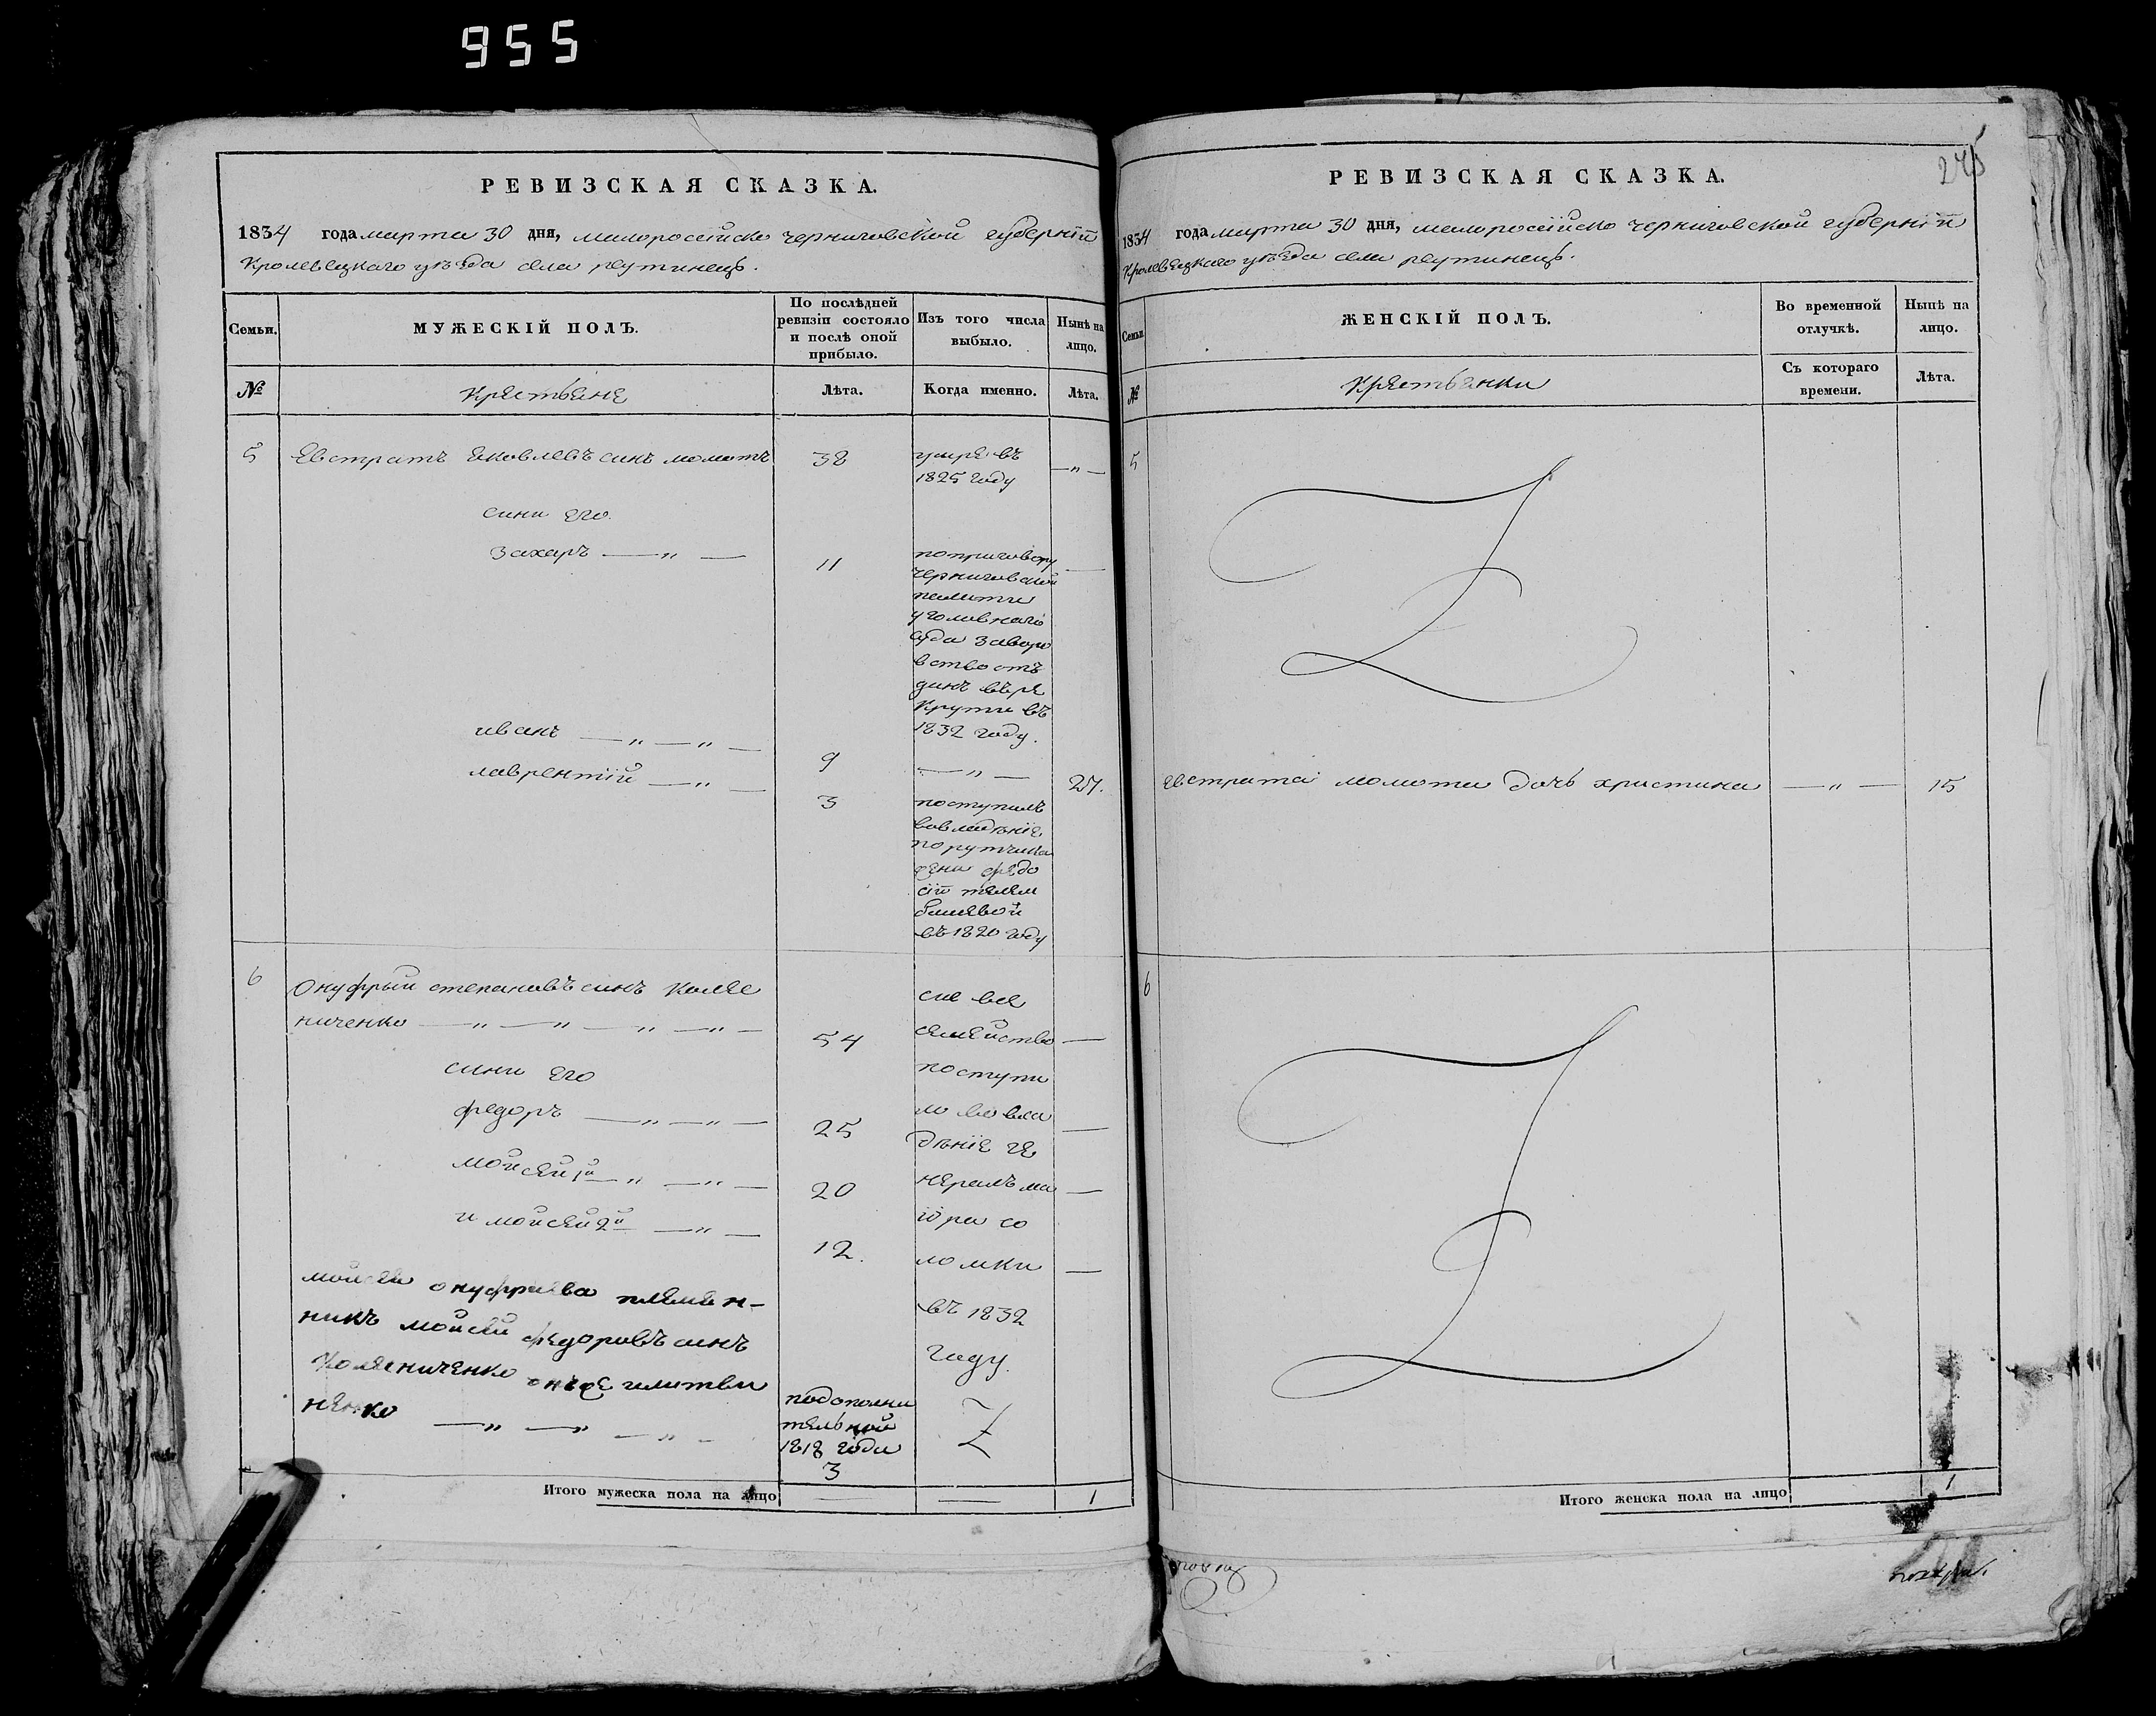 955
РЕВИЗСКАЯ СКАЗКА.
1834 года марта 30 дня, малороссійско черниговской губерніи
Кролевецкаго уѣзда села реутинецъ.
Семьи.
МУЖЕСКІЙ ПОЛЪ.
По послѣдней ревизіи состояло и послѣ оной прибыло.
Изъ того числа выбыло.
Нынѣ на лицо.
№
Крестьяне
Лѣта.
Когда именно.
Лѣта.
5 Евстратъ яковлевъ синъ момотъ 38 умре въ —„—
1825 году
сини его
захаръ —„— 11 по приговору —
черниговской
палати
уголовнаго
суда за воро
вство отъ
данъ въ ре
крути въ
1832 году.
иванъ —„—„— 9 —„— 27.
лаврентій —„— 3 поступилъ
во владѣніе
порутчика
жени федо
сіи
в 1820 году
6 Онуфрый степановъ синъ коле
ниченко —„—„—„—„— 54 сие все
семейство —
сини его поступи
федоръ —„—„— 25 ло во вла —
дѣніе ге
мойсей 1й —„—„— 20 нералъ ма —
и мойсей 2й —„— 12. іора со
ломки —
мойсея онуфриева племен-
никъ мойсей федоровъ синъ въ 1832
Колениченко онъ же илитви году.
ненко —„—„—„—
по дополни
тельной
1818 года
3
Итого мужеска пола на лицо — — 1
245
РЕВИЗСКАЯ СКАЗКА.
1834 года марта 30 дня, малороссійско черниговской губерніи
Кролевецкаго уѣзда села реутинецъ.
Семьи.
ЖЕНСКІЙ ПОЛЪ.
Во временной отлучкѣ.
Нынѣ на лицо.
№
Крестьянки
Съ котораго времени.
Лѣта.
5
Евстрата момота дочь христина —„— 15
6
Итого женска пола на лицо 1